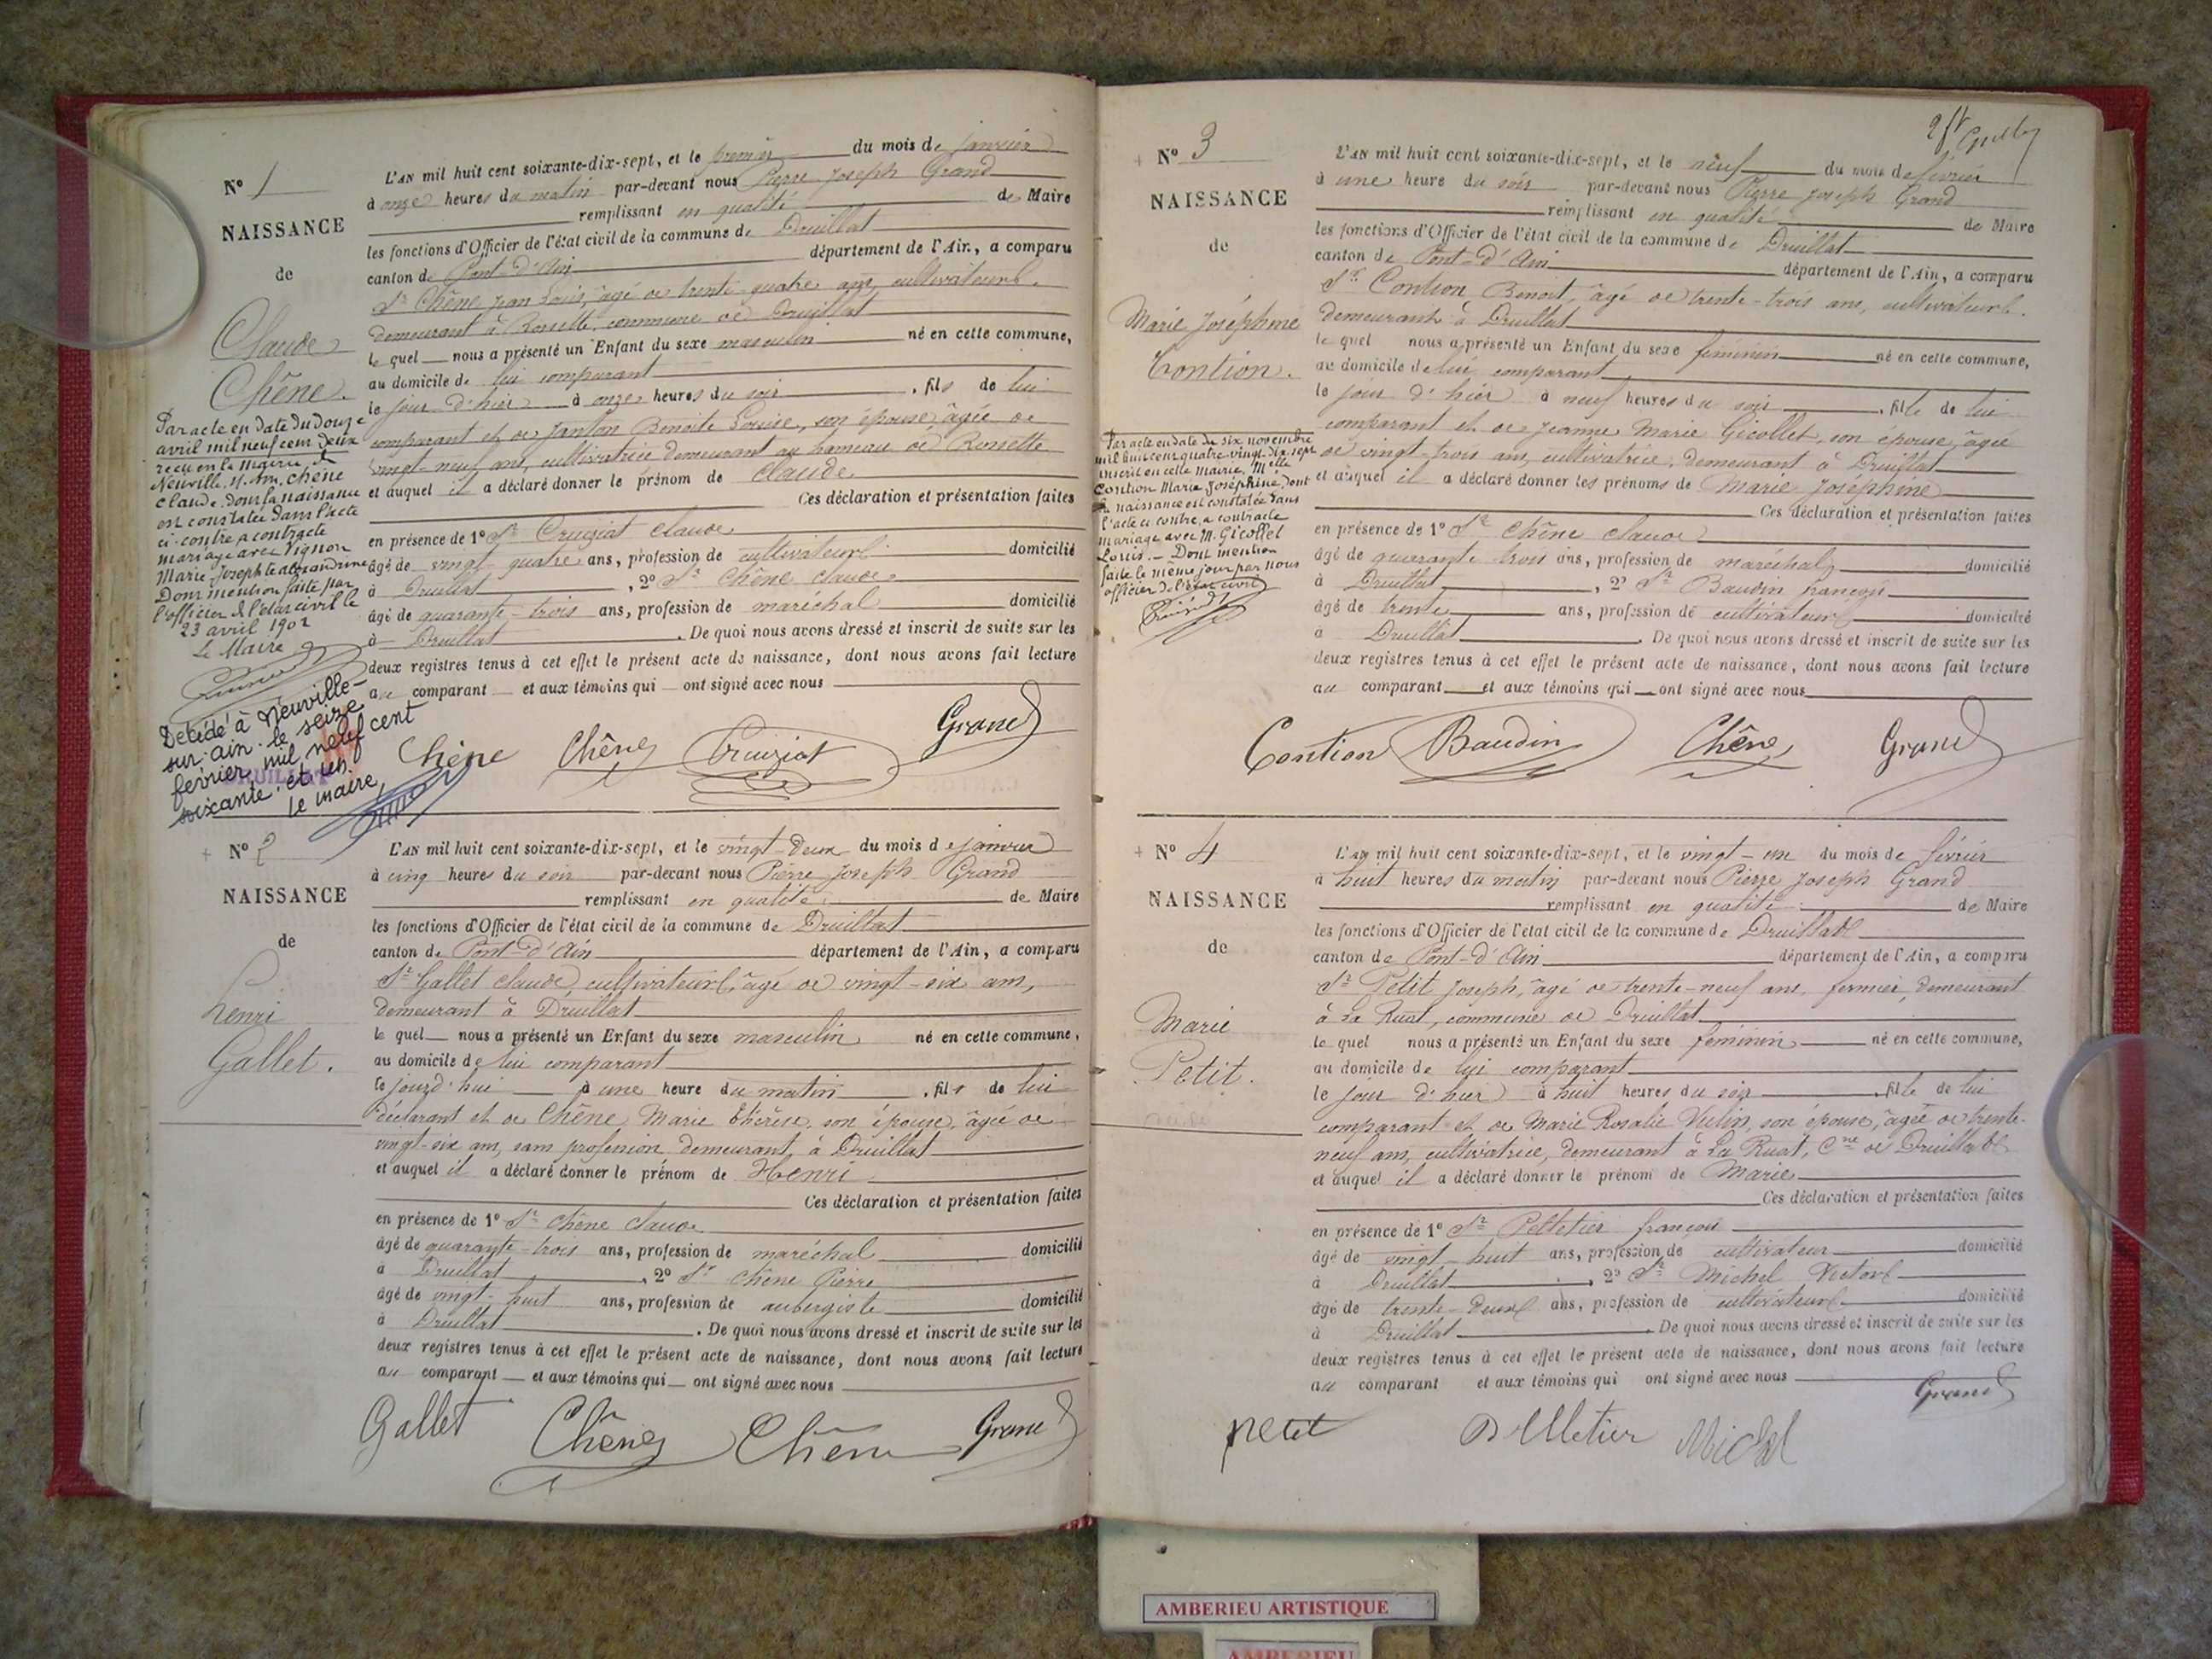 N° 1
NAISSANCE
de
Claude
Chêne.
Par acte en date du douze
avril mil neuf cent deux
reçu en la mairie de
Neuville-s-Ain, Chêne
Claude, dont la naissance
est constatée dans l'acte
ci-contre a contracté
mariage avec Vignon
Marie-Josephte Alexandrine
Dont mention faite par
l'officier de l'état civil le
23 avril 1902
Le Maire
Décédé à Neuville-
sur-ain le seize
février mil neuf cent
soixante et un.
le maire,
DRUILLAT
L'AN mil huit cent soixante-dix-sept, et le premier du mois de janvier
à onze heures du matin par-devant nous Pierre Joseph Grand
remplissant en qualité de Maire
les fonctions d'Officier de l'état civil de la commune de Druillat
canton de Pont-d'Ain département de l'Ain, a comparu
Sr Chêne Jean Louis, âgé de trente-quatre ans, cultivateur.
demeurant à Rossette, commune de Druillat
le quel nous a présenté un Enfant du sexe masculin né en cette commune,
au domicile de lui comparant
le jour d'hier à onze heures du soir , fils de lui
comparant et de Janton Benoite Louise, son épouse, âgée de
vingt-neuf ans, cultivatrice demeurant au hameau de Rossette
et auquel il a déclaré donner le prénom de Claude
Ces déclaration et présentation faites
en présence de 1° Sr Cruiziat Claude
âgé de vingt-quatre ans, profession de cultivateur domicilié
à Druillat , 2° Sr Chêne Claude
âgé de quarante-trois ans, profession de maréchal domicilié
à Druillat . De quoi nous avons dressé et inscrit de suite sur les
deux registres tenus à cet effet le présent acte de naissance, dont nous avons fait lecture
au comparant et aux témoins qui ont signé avec nous
Chêne Chêne Cruiziat Grand
N° 2
NAISSANCE
de
henri
Gallet.
L'AN mil huit cent soixante-dix-sept, et le vingt-deux du mois de janvier
à cinq heures du soir par-devant nous Pierre Joseph Grand
remplissant en qualité de Maire
les fonctions d'Officier de l'état civil de la commune de Druillat
canton de Pont-d'Ain département de l'Ain, a comparu
Sr Gallet Claude, cultivateur, âgé de vingt-six ans,
demeurant à Druillat
le quel nous a présenté un Enfant du sexe masculin né en cette commune,
au domicile de lui comparant
le jourd'hui à une heure du matin , fils de lui
déclarant et de Chêne Marie Thérèse, son épouse, âgée de
vingt-six ans, sans profession, demeurant à Druillat
et auquel il a déclaré donner le prénom de Henri
Ces déclaration et présentation faites
en présence de 1° Sr Chêne Claude
âgé de quarante-trois ans, profession de maréchal domicilié
à Druillat , 2° Sr Chêne Pierre
âgé de vingt-huit ans, profession de aubergiste domicilié
à Druillat . De quoi nous avons dressé et inscrit de suite sur les
deux registres tenus à cet effet le présent acte de naissance, dont nous avons fait lecture
au comparant et aux témoins qui ont signé avec nous
Gallet Chêne Chêne Grand
N° 3
NAISSANCE
de
Marie Joséphine
Contion.
Par acte en date du six novembre
mil huit cent quatre-vingt-dix-sept
inscrit en cette mairie, Melle
Contion Marie Joséphine, dont
la naissance est constatée dans
l'acte ci contre, a contracté
mariage avec M. Gicollet
Louis. - Dont mention
faite le même jour par nous
officier de l'état civil
L'AN mil huit cent soixante-dix-sept, et le neuf du mois de février
à une heure du soir par-devant nous Pierre Joseph Grand
remplissant en qualité de Maire
les fonctions d'Officier de l'état civil de la commune de Druillat
canton de Pont-d'Ain département de l'Ain, a comparu
Sr Contion Benoit, âgé de trente-trois ans, cultivateur.
demeurant à Druillat
le quel nous a présenté un Enfant du sexe féminin né en cette commune,
au domicile de lui comparant
le jour d'hier à neuf heures du soir , fille de lui
comparant et de Jeanne Marie Gicollet, son épouse, âgée
de vingt-trois ans, cultivatrice, demeurant à Druillat
et auquel il a déclaré donner les prénoms de Marie Joséphine
Ces déclaration et présentation faites
en présence de 1° Sr Chêne Claude
âgé de quarante-trois ans, profession de maréchal domicilié
à Druillat , 2° Sr Baudin françois
âgé de trente ans, profession de cultivateur domicilié
à Druillat . De quoi nous avons dressé et inscrit de suite sur les
deux registres tenus à cet effet le présent acte de naissance, dont nous avons fait lecture
au comparant et aux témoins qui ont signé avec nous
Contion Baudin Chêne Grand
N° 4
NAISSANCE
de
Marie
Petit.
L'AN mil huit cent soixante-dix-sept, et le vingt-un du mois de février
à huit heures du matin par-devant nous Pierre Joseph Grand
remplissant en qualité de Maire
les fonctions d'Officier de l'état civil de la commune de Druillat
canton de Pont-d'Ain département de l'Ain, a comparu
Sr Petit Joseph, âgé de trente-neuf ans, fermier, demeurant
à La Ruat, commune de Druillat
le quel nous a présenté un Enfant du sexe féminin né en cette commune,
au domicile de lui comparant
le jour d'hier à huit heures du soir , fille de lui
comparant et de Marie Rosalie Vulin, son épouse, âgée de trente-
neuf ans, cultivatrice, demeurant à La Ruat, Cne de Druillat
et auquel il a déclaré donner le prénom de Marie
Ces déclaration et présentation faites
en présence de 1° Sr Pelletier françois
âgé de vingt-huit ans, profession de cultivateur domicilié
à Druillat , 2° Sr Michel Victor
âgé de trente-deux ans, profession de cultivateur domicilié
à Druillat . De quoi nous avons dressé et inscrit de suite sur les
deux registres tenus à cet effet le présent acte de naissance, dont nous avons fait lecture
au comparant et aux témoins qui ont signé avec nous
Grand
petit Pelletier Michel
AMBERIEU ARTISTIQUE
AMBERIEU